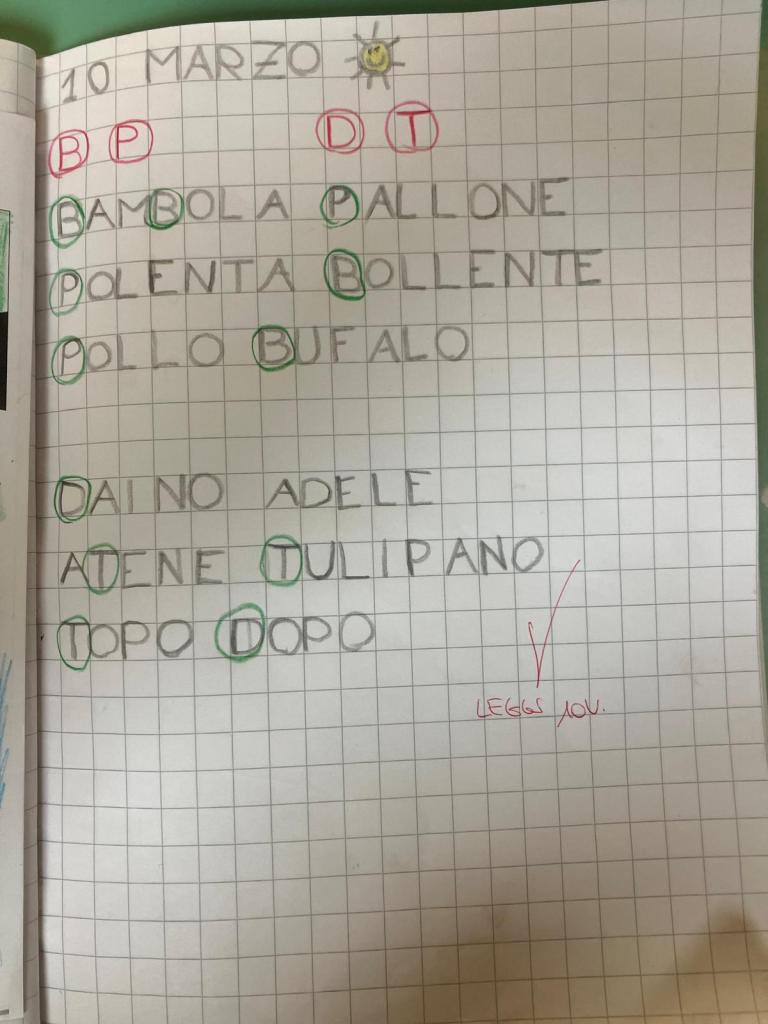 10 MARZO
B P D T
BAMBOLA PALLONE
POLENTA BOLLENTE
POLLO BUFALO
DAINO ADELE
ATENE TULIPANO
TOPO DOPO
10V.